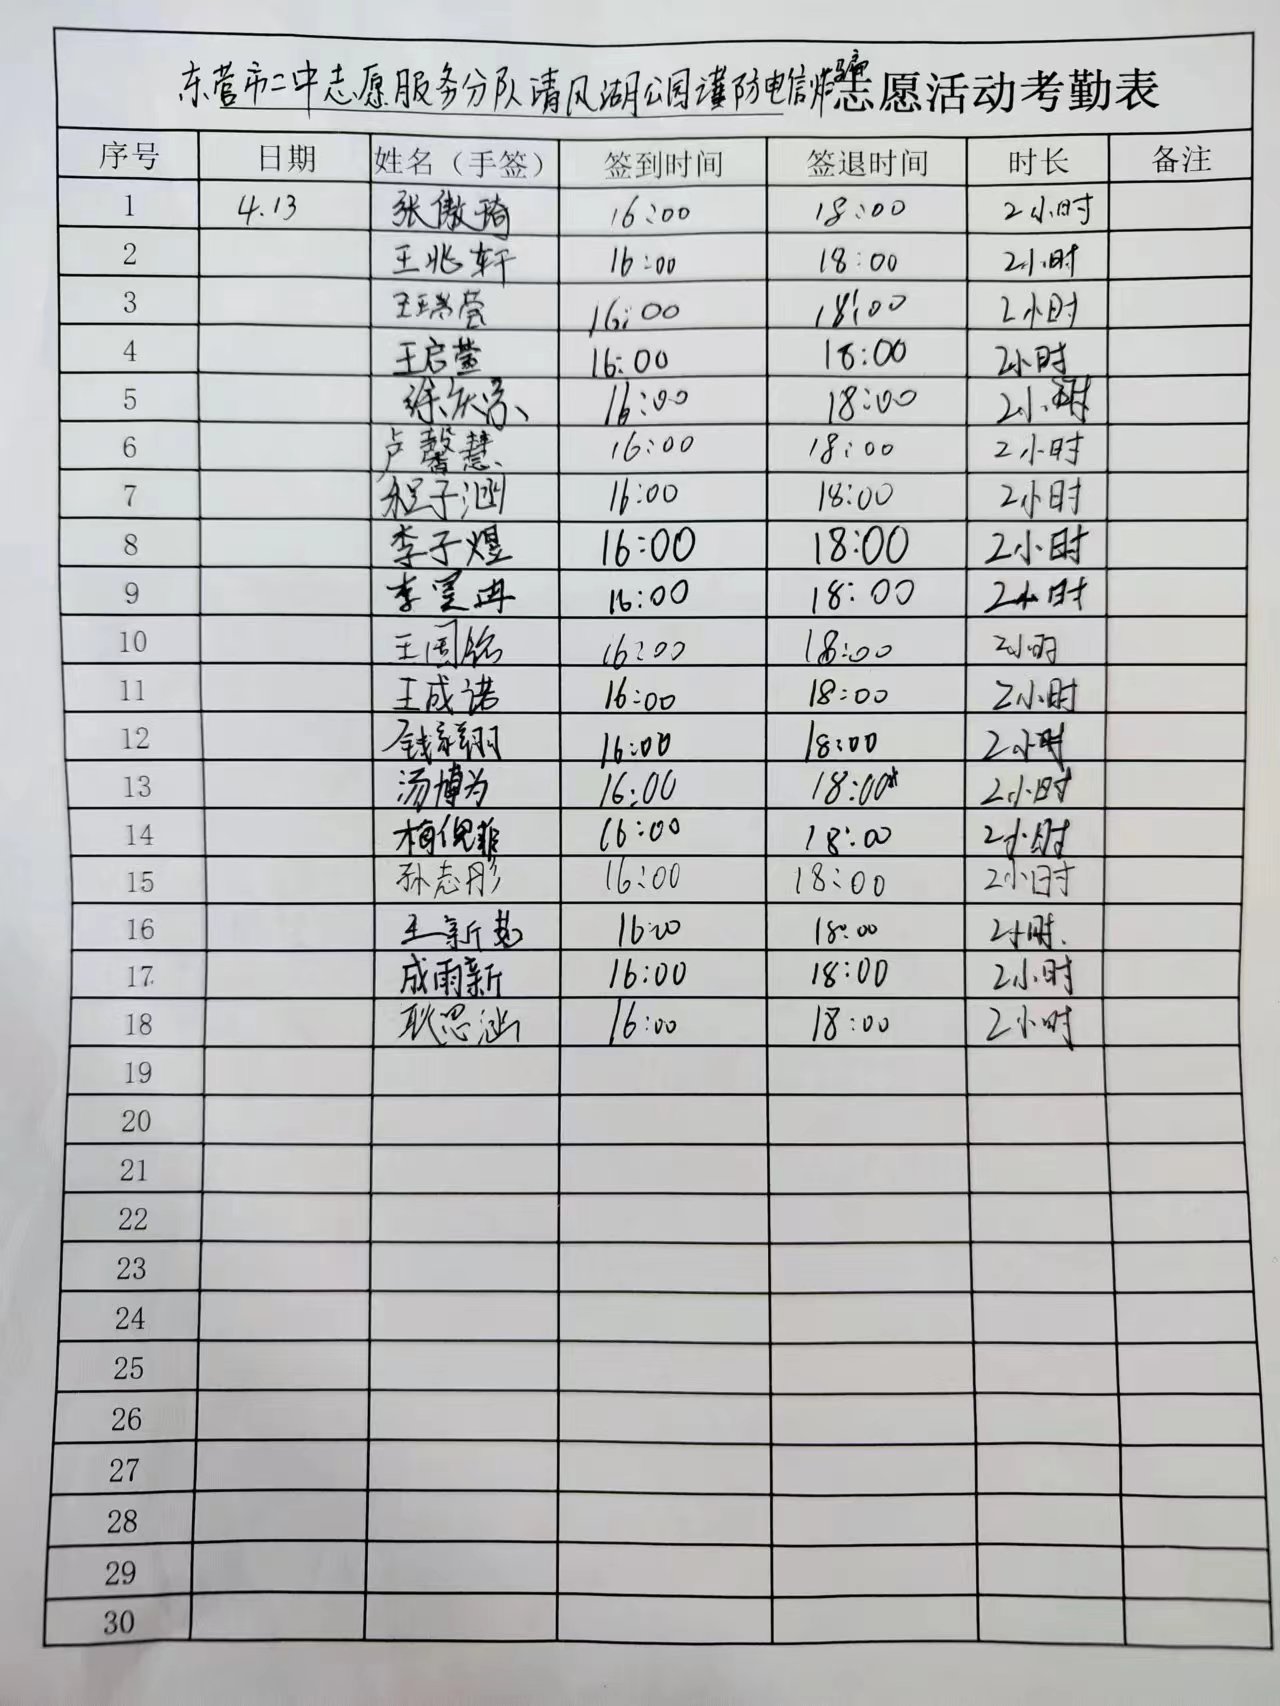 东营市二中志愿服务分队清风湖公园谨防电信诈骗志愿活动考勤表
序号 日期 姓名（手签） 签到时间 签退时间 时长 备注
1 4.13 张傲琦 16:00 18:00 2小时
2 王兆轩 16:00 18:00 2小时
3 王瑞莹 16:00 18:00 2小时
4 王启萱 16:00 18:00 2小时
5 16:00 18:00 2小时
6 卢馨慧 16:00 18:00 2小时
7 程子涵 16:00 18:00 2小时
8 李子煜 16:00 18:00 2小时
9 李昱冉 16:00 18:00 2小时
10 16:00 18:00 2小时
11 王成诺 16:00 18:00 2小时
12 16:00 18:00 2小时
13 汤博为 16:00 18:00 2小时
14 16:00 18:00 2小时
15 孙志彤 16:00 18:00 2小时
16 16:00 18:00 2小时
17 成雨新 16:00 18:00 2小时
18 耿思涵 16:00 18:00 2小时
19
20
21
22
23
24
25
26
27
28
29
30